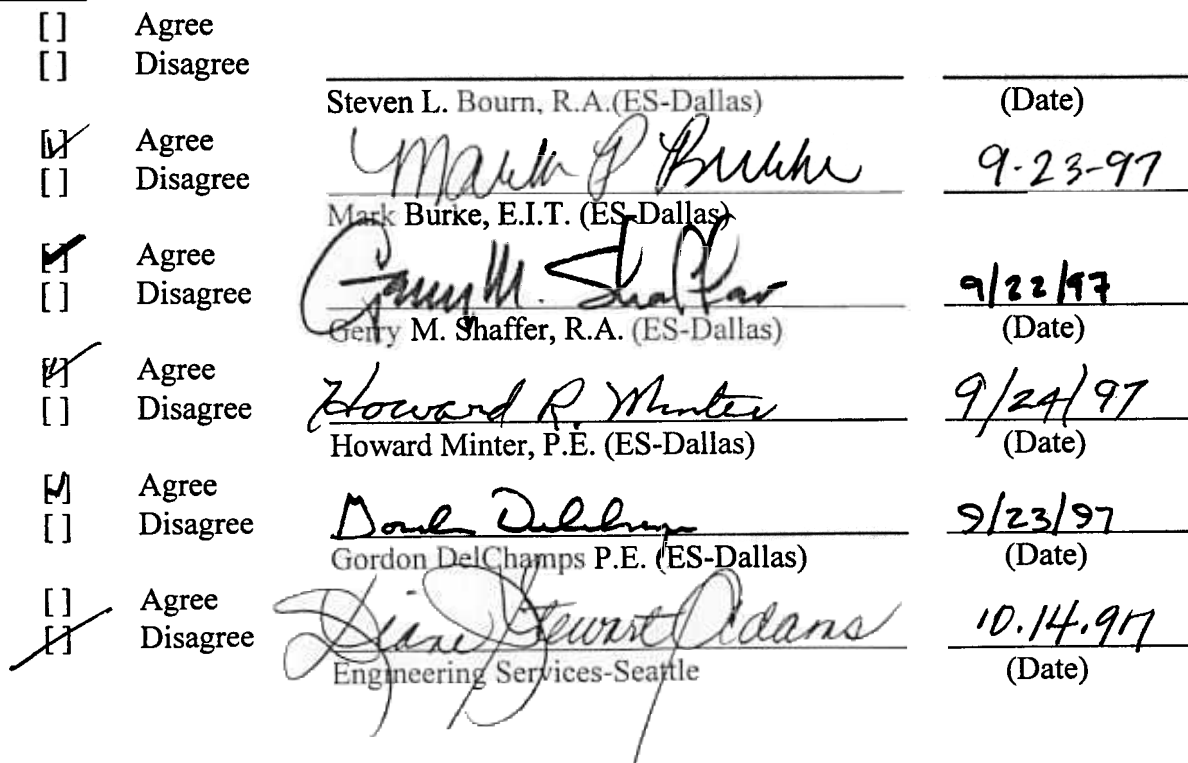 [ ] Agree
[ ] Disagree
Steven L. Bourn, R.A.(ES-Dallas) (Date)
[✓] Agree
[ ] Disagree
Mark P Burke 9-23-97
Mark Burke, E.I.T. (ES-Dallas)
[✓] Agree
[ ] Disagree
Gerry M. Shaffer 9/22/97
Gerry M. Shaffer, R.A. (ES-Dallas) (Date)
[✓] Agree
[ ] Disagree
Howard R. Minter 9/24/97
Howard Minter, P.E. (ES-Dallas) (Date)
[✓] Agree
[ ] Disagree
Gordon DelChamps 9/23/97
Gordon DelChamps P.E. (ES-Dallas) (Date)
[ ] Agree
[✓] Disagree
Diane Stewart Adams 10.14.97
Engineering Services-Seattle (Date)